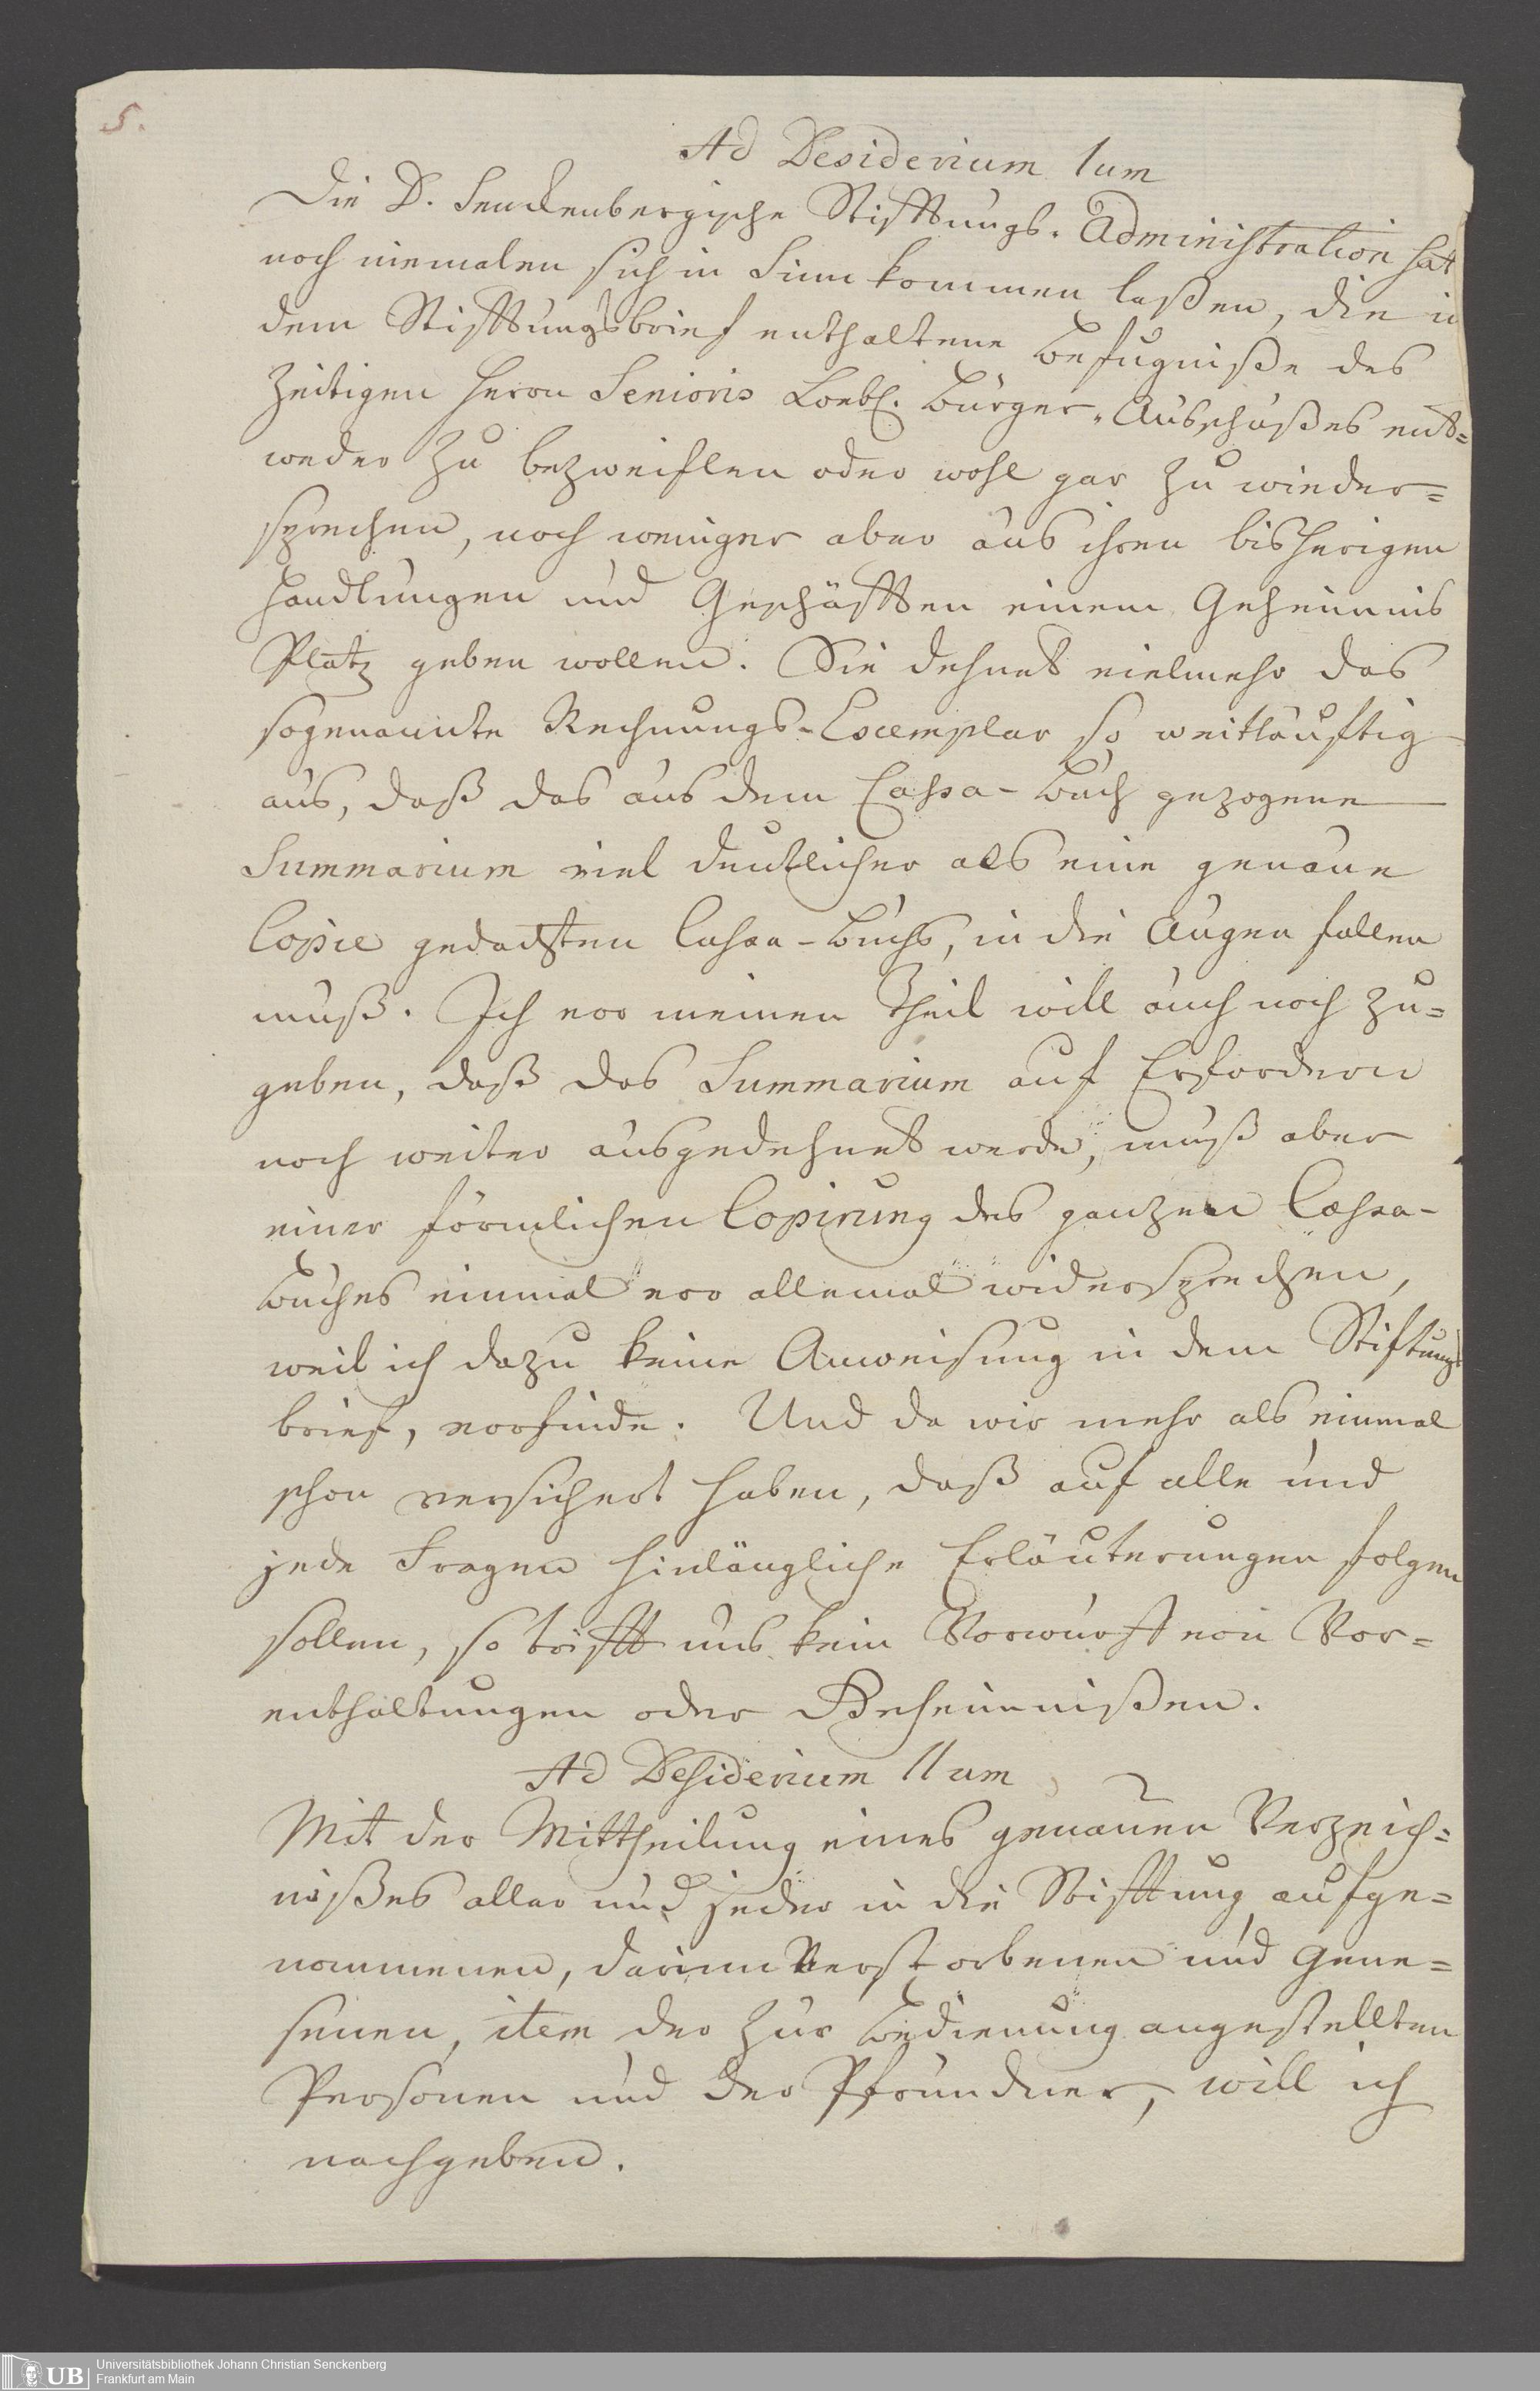 5.
Ad Desiderium 1um
Die D. Senckenbergische Stifftungs-Administration hat
noch niemalen sich in Sinn kommen laßen, die in
dem Stifftungsbrief enthaltene Befugniße des
Zeitigen Herrn Senioris Loebl. Bürger-Ausschußes ent=
weder zu bezweiflen oder wohl gar zu wieder=
sprechen, noch weniger aber aus ihren bisherigen
Handlungen und Geschäfften einem Geheimnis
Platz geben wollen. Sie dehnet vielmehr das
sogenannte Rechnungs-Exemplar so weitläuftig
aus, daß das aus dem Cassa-Buch gezogene
Summarium viel deutlicher als eine genaue
Copie gedachten Cassa-Buchs, in die Augen fallen
muß. Ich vor meinen Theil will auch noch zu=
geben, daß das Summarium auf Erfordern
noch weiter ausgedehnet werde, muß aber
einer förmlichen Copirung des ganzen Cassa-
Buches einmal vor allemal widersprechen,
weil ich dazu keine Anweisung in dem Stiftungs
brief, vorfinde. Und da wir mehr als einmal
schon versichert haben, daß auf alle und
jede Fragen hinlängliche Erläuterungen folgen
sollen, so trifft uns kein Vorwurff von Vor=
enthaltungen oder Geheimnißen.
Ad Desiderium IIum
Mit der Mittheilung eines genauen Verzeich=
nißes aller und jeder in die Stifftung aufge=
nommenen, darinn Verstorbenen und Gene=
senen, item der zur Bedienung angestellten
Personen und der Pfründner, will ich
nachgeben.
UB
Universitätsbibliothek Johann Christian Senckenberg
Frankfurt am Main